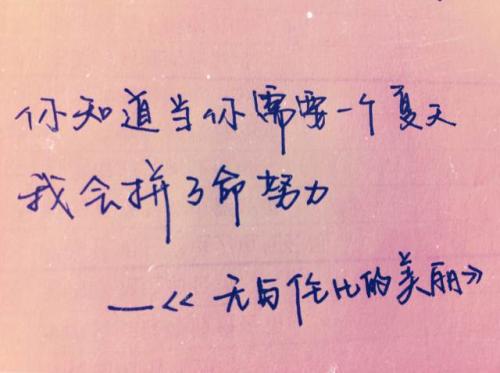 你知道当你需要一个夏天
我会拼了命努力
—《无与伦比的美丽》